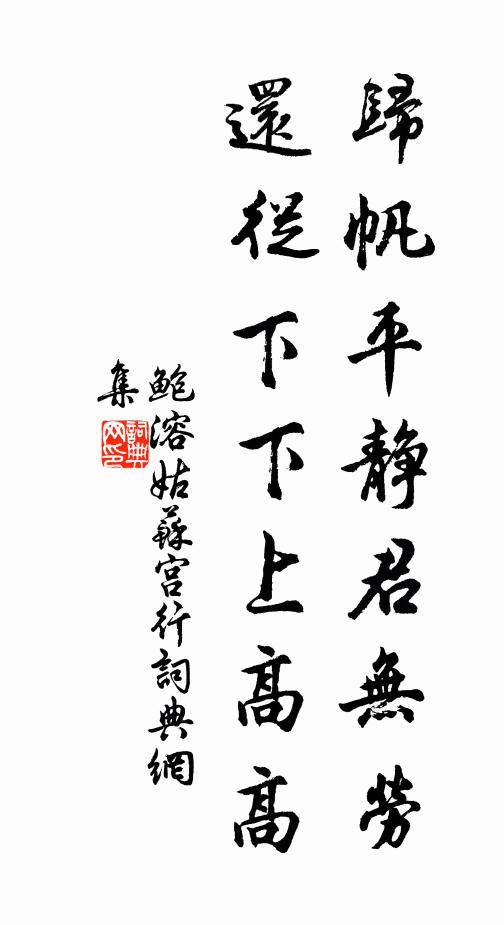 歸帆平静君無勞
還從下下上高高
鮑溶姑蘇宮行詞典網
集
詞典网印